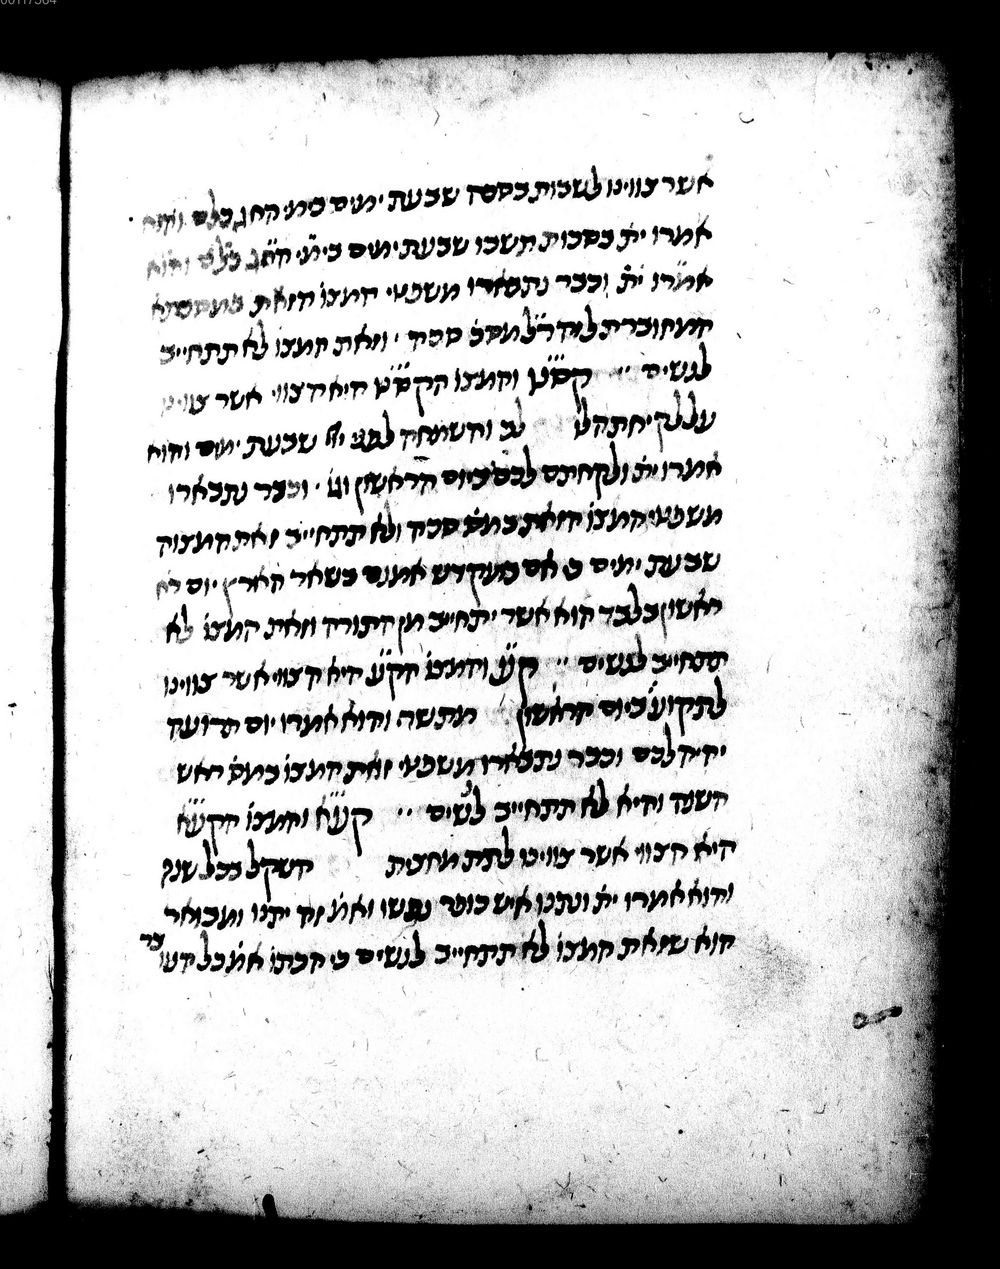 אשר צווינו לשבות בסכה שבעת ימים בימי החג כלם והוא
אמרו ית׳ בסכות תשבו שבעת ימים בימי החג כלם והוא
אמרו ית׳ וכבר נתבארו משפטי המצו׳ הזאת
המחוברת לידר״ל מס׳ סכה ׳ וזאת המצו׳ לא תתחייב
לנשים ׃ קס״ט והמצו׳ הקס״ט היא הצווי אשר צווינו
על לקיחת הלולב והשמחה לפני יי׳ שבעת ימים והוא
אמרו ית׳ ולקחתם לכם ביום הראשון וגו׳ ׳ וכבר נתבארו
משפטי המצו׳ הזאת במס׳ סכה ולא תתחייב זאת המצוה
שבעת ימים כי אם במקדש אמנם בשאר הארץ יום רא
ראשון בלבד הוא אשר יתחייב מן התורה וזאת המצו׳ לא
תתחייב לנשים ׃ ק״ע והמצו׳ הק״ע היא הצווי אשר צווינו
לתקוע ביום הראשון מתשרי והוא אמרו יום תרועה
יהיה לכם וכבר נתבארו משפטי זאת המצו׳ במס׳ ראש
השנה והיא לא תתחייב לנשים ׃ קע״א והמצו׳ הקע״א
היא הצווי אשר צווינו לתת מחצית השקל בכל שנה
והוא אמרו ית׳ ונתנו איש כופר נפשו ואמ׳ זה יתנו ומבואר
הוא שזאת המצו׳ לא תתחייב לנשים כי הכתו׳ אמ׳ כל העובר